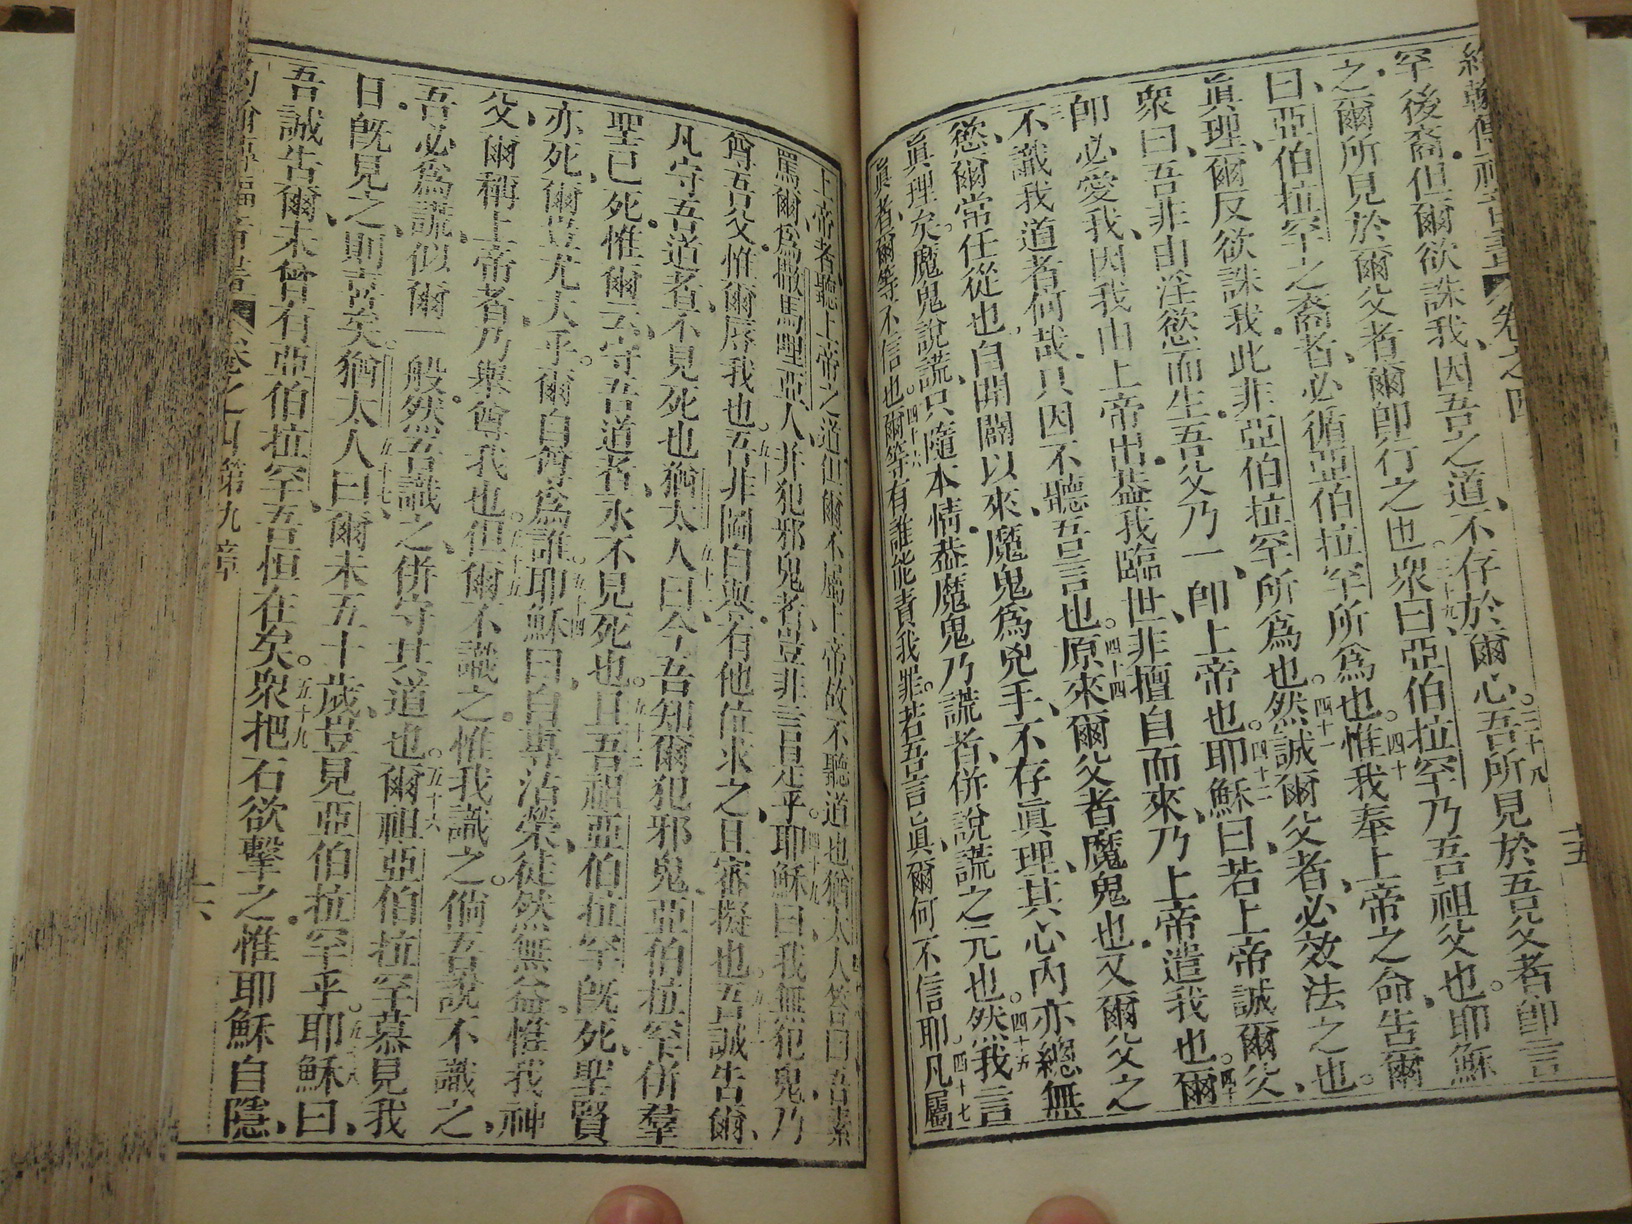 約翰傳福音書 卷之四 十五
罕後裔但爾欲誅我因吾之道不存於爾心三十八吾所見於吾父者卽言
之爾所見於爾父者爾卽行之也三十九衆曰亞伯拉罕乃吾祖父也耶穌
曰亞伯拉罕之裔者必循亞伯拉罕所爲也四十惟我奉上帝之命告爾
眞理爾反欲誅我此非亞伯拉罕所爲也四十一然誠爾父者必效法之也
衆曰吾非由淫慾而生吾父乃一卽上帝也四十二耶穌曰若上帝誠爾父
卽必愛我因我由上帝出蓋我臨世非擅自而來乃上帝遣我也四十三爾
不識我道者何哉只因不聽吾言也四十四原來爾父者魔鬼也又爾父之
慾爾常任從也自開闢以來魔鬼爲兇手不存眞理其心內亦總無
眞理矣魔鬼說謊只隨本情蓋魔鬼乃謊者併說謊之元也四十五然我言
眞者爾等不信也四十六爾等有誰能責我罪若吾言眞爾何不信耶四十七凡屬
上帝者聽上帝之道但爾不屬上帝故不聽道也猶太人答曰吾素
罵爾爲撒馬哩亞人并犯邪鬼者豈非言是乎四十九耶穌曰我無犯鬼乃
尊吾父惟爾辱我也五十吾非圖自與有他位求之且審擬也五十一吾誠告爾
凡守吾道者卽不見死也五十二猶太人曰今吾知爾犯邪鬼亞伯拉罕併羣
聖已死惟爾云守吾道者永不見死也五十三且吾祖亞伯拉罕旣死聖賢
亦死爾豈尤大乎爾自尊爲誰五十四耶穌曰自專沾榮徒然無益惟我神
父爾稱上帝者乃與尊我也五十五但爾不識之惟我識之倘吾說不識之
吾必爲謊似爾一般然吾識之併守其道也五十六爾祖亞伯拉罕慕見我
日旣見之則喜矣五十七猶太人曰爾未五十歲豈見亞伯拉罕乎五十八耶穌曰
吾誠告爾未曾有亞伯拉罕吾恒在矣五十九衆把石欲擊之惟耶穌自隱
約翰傳福音書 卷之四 第九章 十六